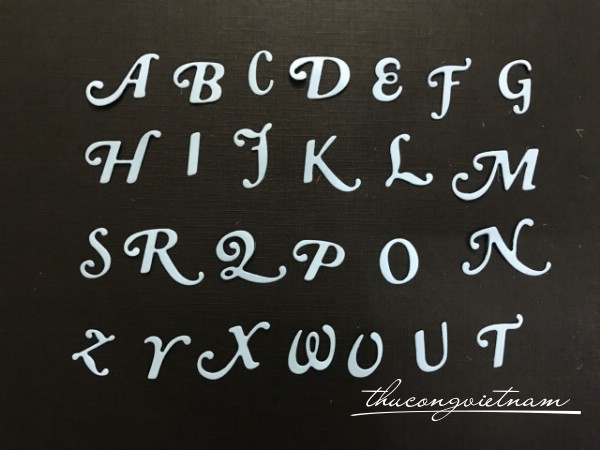 A B C D E F G
H I J K L M
S R Q P O N
Z Y X W V U T
thucongvietnam